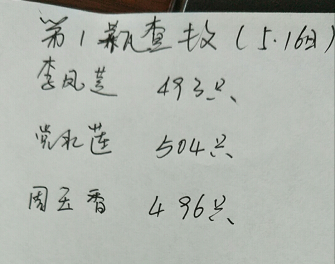 第1瓶查数(5.16日)
李凤莲 493只
党礼莲 504只
周玉香 496只